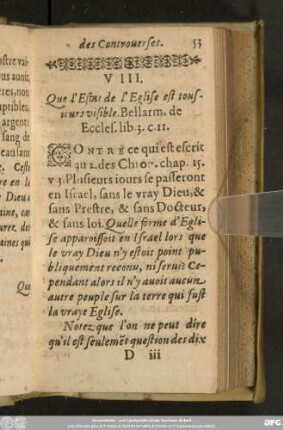 des Controuerses. 53
VIII.
Que l'Estat de l'Eglise est tous-
iours visible. Bellarm. de
Eccles. lib. 3. c. 11.
CONTRE ce qui est escrit
au 2. des Chron. chap. 15.
v 3. Plusieurs iours se passeront
en Israel, sans le vray Dieu, &
sans Prestre, & sans Docteur,
& sans loi. Quelle forme d'Egli-
se apparoissoit en Israel lors que
le vray Dieu n'y estoit point pu-
bliquement reconu, ni serui? Ce-
pendant alors il n'y auoit aucun
autre peuple sur la terre qui fust
la vraye Eglise.
Notez que l'on ne peut dire
qu'il est seulemēt question des dix
D iii